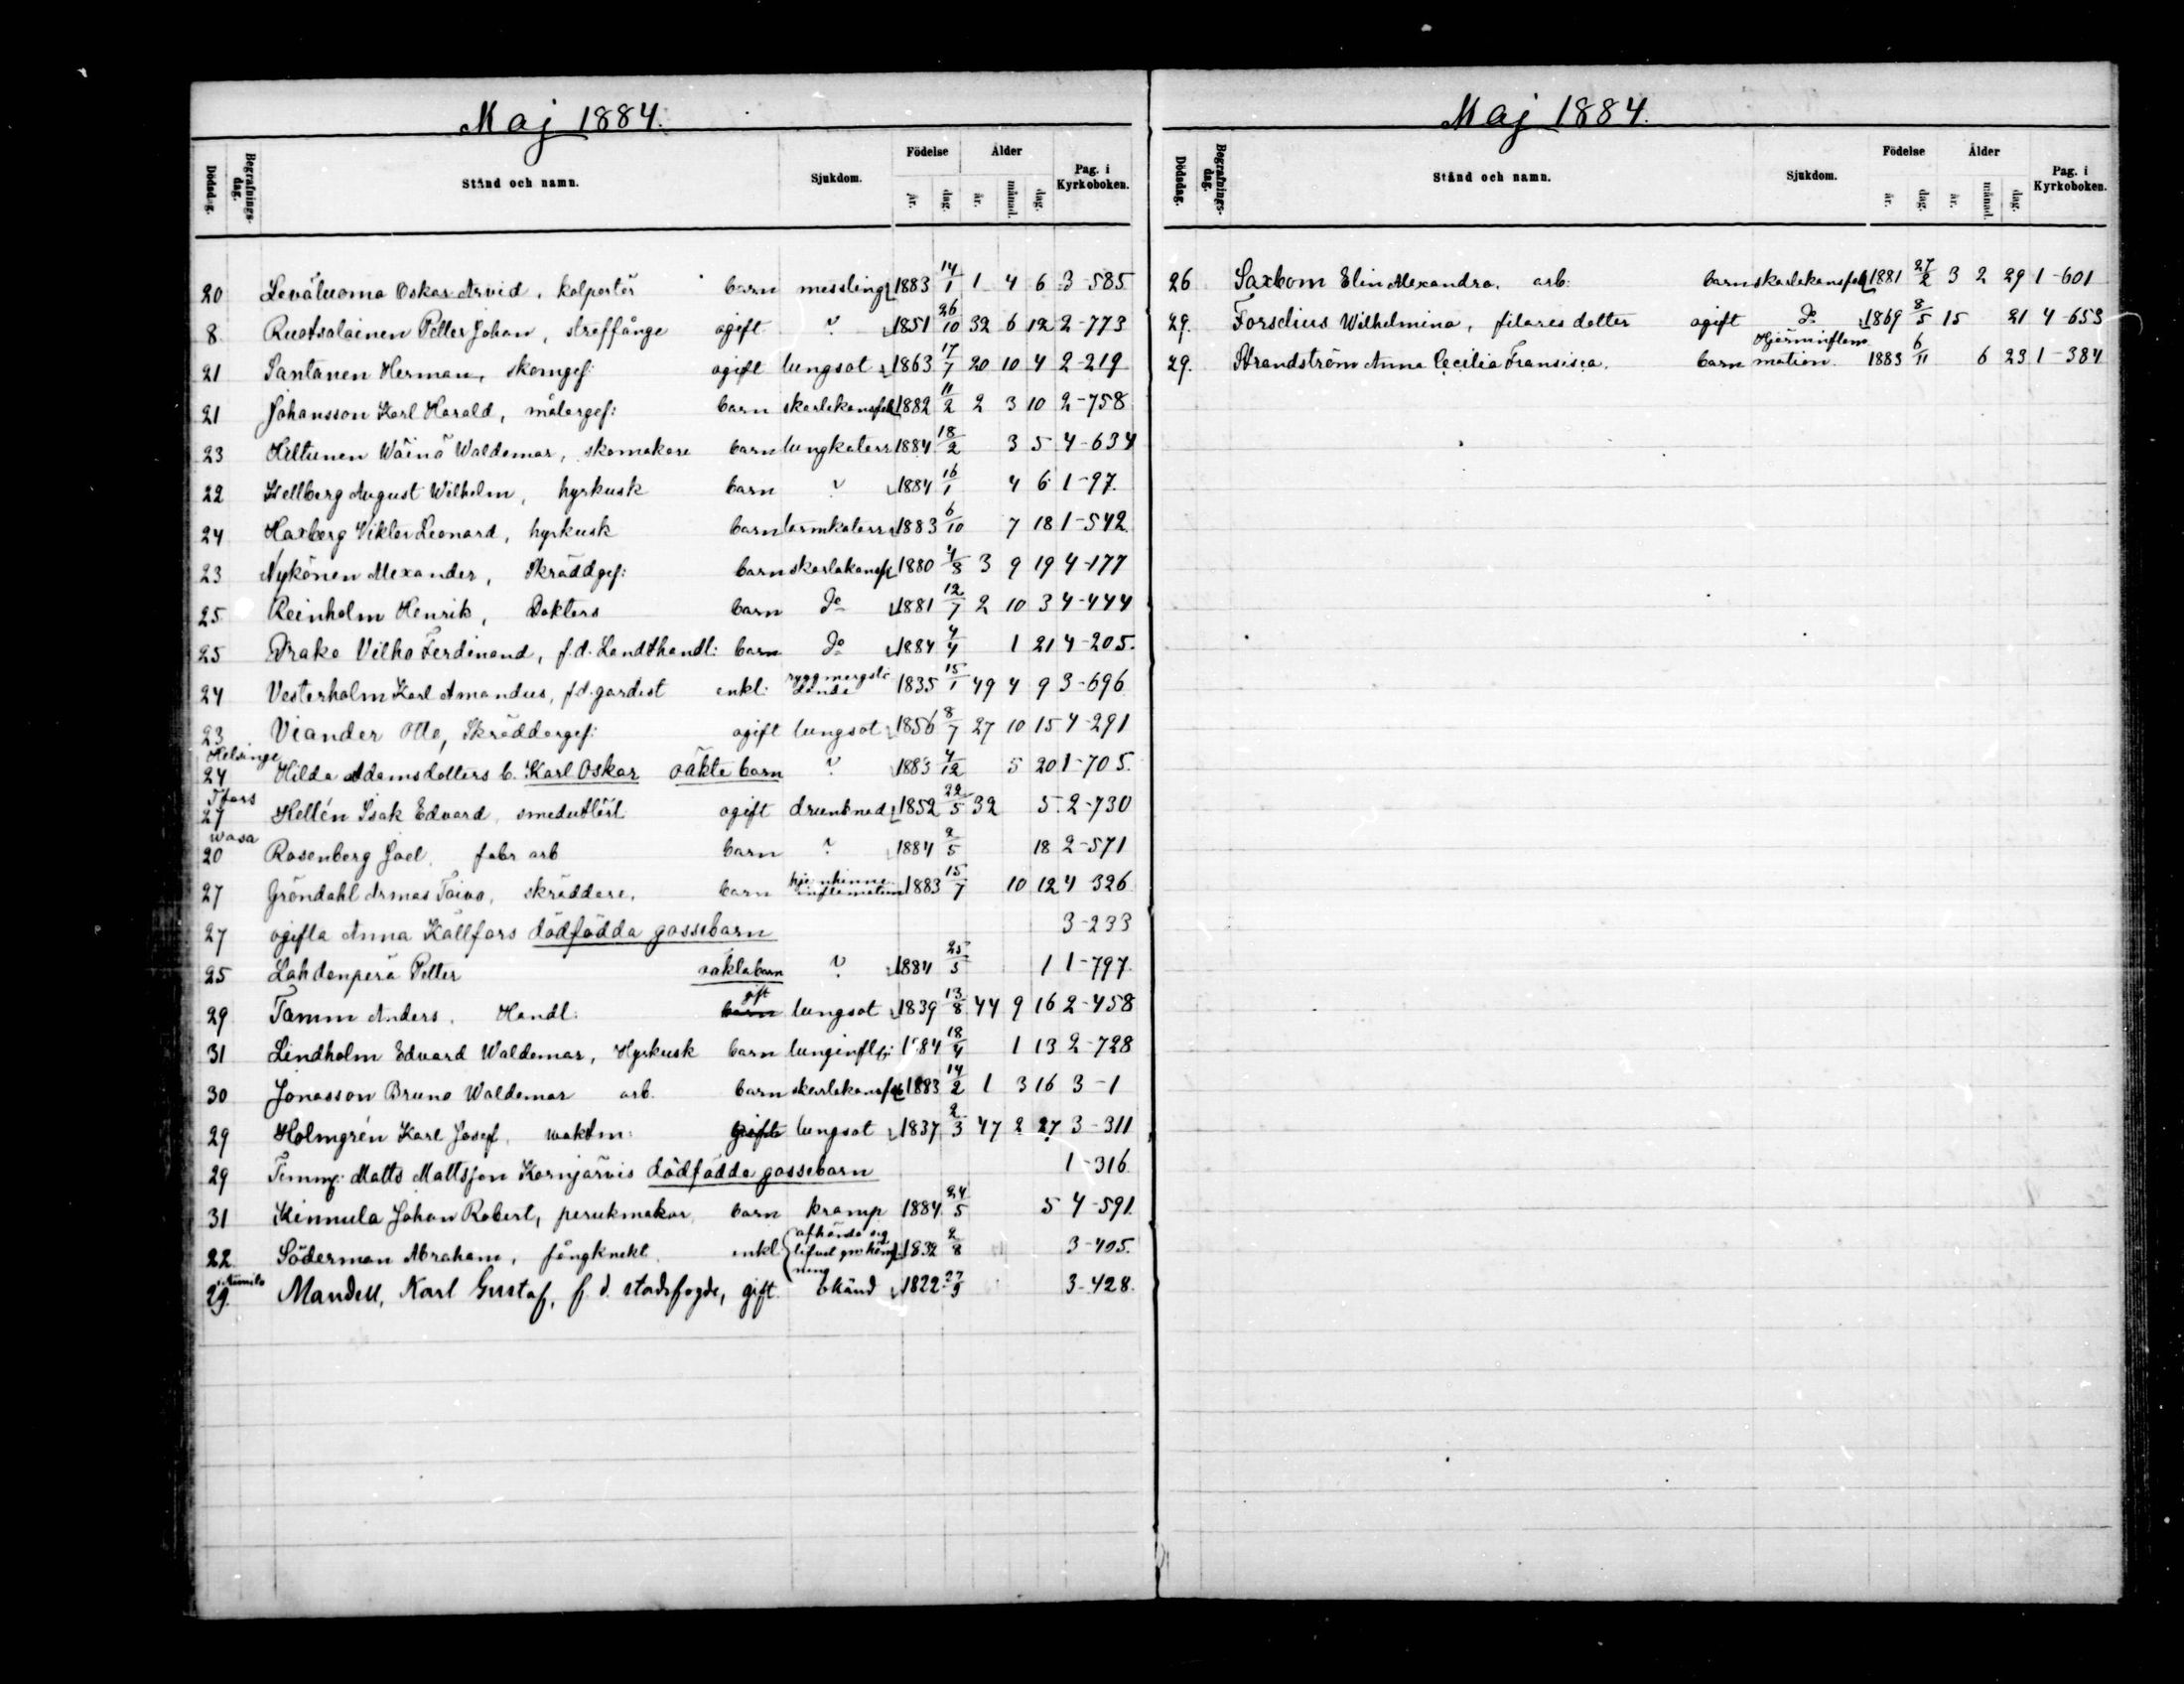 Maj 1884.
Dödsdag. Begrafnings-dag. Stånd och namn. Sjukdom. Födelse år. dag. Ålder år. månad. dag. Pag. i Kyrkoboken.
20 Leväluoma Oskar Arvid, kolportör barn messling 1883 14/1 1 4 6 3-585
8 Ruotsalainen Petter Johan, straffånge ogift ? 1851 26/10 32 6 12 2-773
21 Santanen Herman, skomgef: ogift lungsot 1863 17/7 20 10 4 2-219
21 Johansson Karl Harald, målargef: barn skarlakansfeb 1882 11/2 2 3 10 2-758
23 Hiltunen Wäinö Waldemar, skomakare barn lungkatarr 1884 18/2 3 5 4-634
22 Hellberg August Wilhelm, hyrkusk barn ? 1884 16/1 4 6 1-97.
24 Haxberg Viktor Leonard, hyrkusk barn tarmkatarr 1883 6/10 7 18 1-542
23 Nykönen Alexander, Skräddgef: barn skarlakansf 1880 4/8 3 9 19 4-177
25 Reinholm Henrik, Doktors barn Do 1881 12/7 2 10 3 4-444
25 Drake Vilho Ferdinand, f.d. Landthandl: barn Do 1884 4/4 1 21 4-205.
24 Vesterholm Karl Amandus, f.d. gardist enkl: ryggmergsli-dande 1835 15/1 49 4 9 3-696
23 Viander Otto, Skräddargef: ogift lungsot 1856 8/7 27 10 15 4-291
Helsinge
24 Hilda Adamsdotters b. Karl Oskar oäkta barn ? 1883 4/12 5 20 1-705.
T:fors
27 Hellén Isak Edvard, smedutlärl ogift drunknad 1852 22/5 32 5 2-730
Wasa
20 Rosenberg Joel, fabr arb barn ? 1884 2/5 18 2-571
27 Gröndahl Armas Toivo, skräddare, barn hjernhinne-inflamation 1883 15/7 10 12 4-326
27 ogifta Anna Källfors dödfödda gossebarn 3-233
25 Lahdenperä Petter oäkta barn ? 1884 25/5 1 1-797
29 Tamm Anders, Handl: barn gift lungsot 1839 13/8 44 9 16 2-458
31 Lindholm Edvard Waldemar, Hyrkusk barn lunginfl: 1884 18/4 1 13 2-728
30 Jonasson Bruno Waldemar arb. barn skarlakansfeb 1883 14/2 1 3 16 3-1
29 Holmgrén Karl Josef, waktm: gift lungsot 1837 2/3 47 2 27 3-311
29 Timmf: Matts Mattsson Karnjärvis dödfödda gossebarn 1-316
31 Kinnula Johan Robert, perukmakar barn kramp 1884 24/5 5 4-591.
22 Söderman Abraham, fångknekt enkl afhände sig lifvet gm hängning 1832 2/8 3-405.
29 Mandell, Karl Gustaf, f. d. stadsfogde, gift okänd 1822 27/9 3-428.
Maj 1884.
Dödsdag. Begrafnings-dag. Stånd och namn. Sjukdom. Födelse år. dag. Ålder år. månad. dag. Pag. i Kyrkoboken.
26 Saxbom Elin Alexandra, arb: barn skarlakansfeb 1881 27/2 3 2 29 1-601
29. Forselius Wilhelmina, filares dotter ogift Do 1869 8/5 15 21 4-653
29. Strandström Anna Cecilia Fransisca. barn Hjärninflammation. 1883 6/11 6 23 1-384